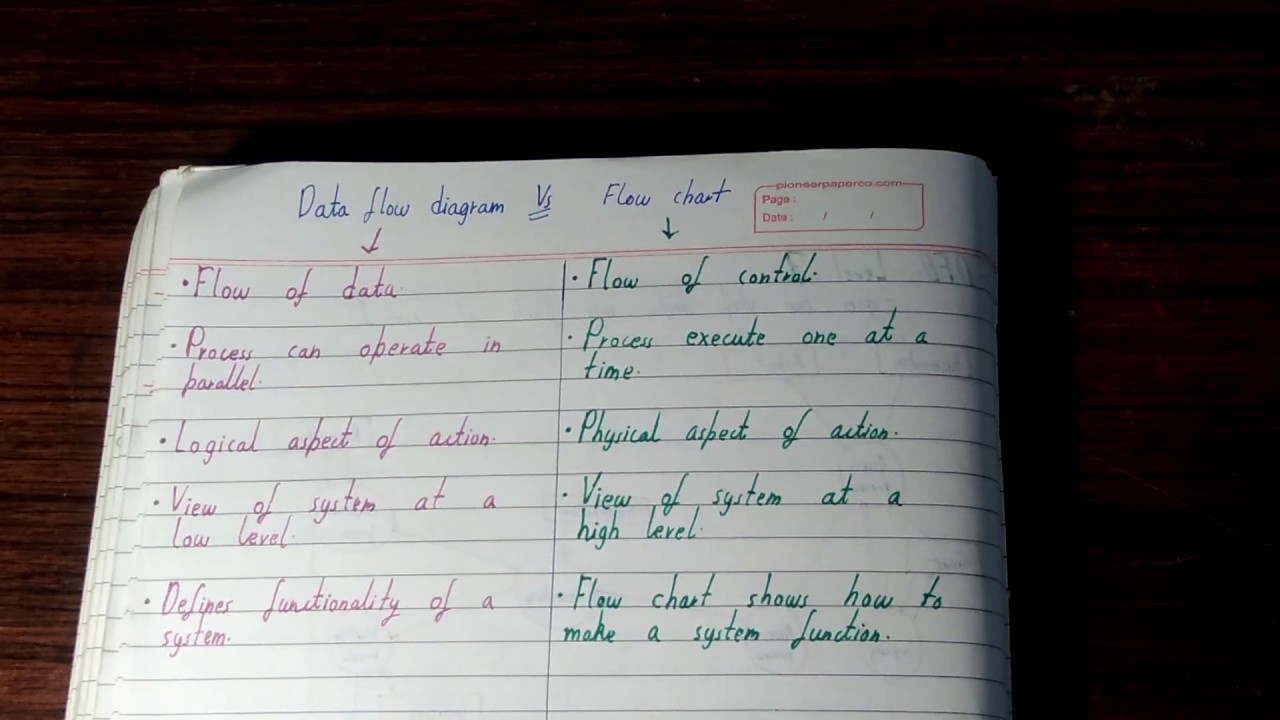 Data flow diagram Vs Flow chart
pioneerpaperco.com
Page :
Date : / /
• Flow of data.
• Process can operate in
parallel.
• Logical aspect of action.
• View of system at a
low level.
• Defines functionality of a
system.
• Flow of control.
• Process execute one at a
time.
• Physical aspect of action.
• View of system at a
high level.
• Flow chart shows how to
make a system function.